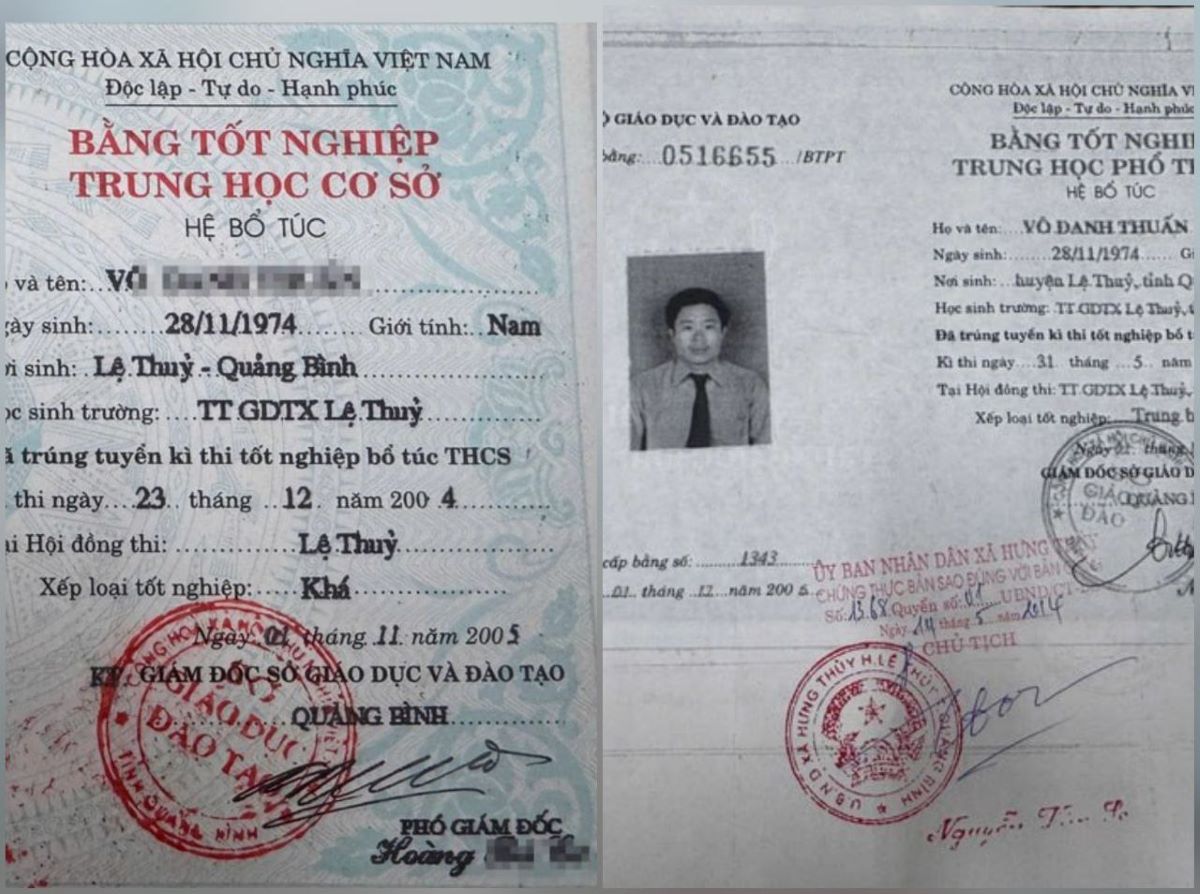 CỘNG HÒA XÃ HỘI CHỦ NGHĨA VIỆT NAM
Độc lập - Tự do - Hạnh phúc
BẰNG TỐT NGHIỆP
TRUNG HỌC CƠ SỞ
HỆ BỔ TÚC
và tên:..VÕ
gày sinh:........28/11/1974........ Giới tính:..Nam
i sinh:..Lệ Thuỷ - Quảng Bình
ọc sinh trường:....TT GDTX Lệ Thuỷ
ã trúng tuyển kì thi tốt nghiệp bổ túc THCS
thi ngày....23.. tháng ....12.. năm 2004
ại Hội đồng thi:................Lệ Thuỷ
Xếp loại tốt nghiệp:......Khá
Ngày 01 tháng 11 năm 2005
KT. GIÁM ĐỐC SỞ GIÁO DỤC VÀ ĐÀO TẠO
QUẢNG BÌNH
SỞ
GIÁO DỤC
ĐÀO TẠO
TỈNH QUẢNG BÌNH
PHÓ GIÁM ĐỐC
Hoàng
CỘNG HÒA XÃ HỘI CHỦ NGHĨA VI
Độc lập - Tự do - Hạnh phúc
Ộ GIÁO DỤC VÀ ĐÀO TẠO
bằng:...0516655.../BTPT
BẰNG TỐT NGHIỆ
TRUNG HỌC PHỔ T
HỆ BỔ TÚC
Họ và tên:....VÕ DANH THUẤN
Ngày sinh:........28/11/1974....... Gi
Nơi sinh:...huyện Lệ Thuỷ, tỉnh Q
Học sinh trường: TT GDTX Lệ Thuỷ,
Đã trúng tuyển kì thi tốt nghiệp bổ t
Kì thi ngày....31. tháng ...5.. năm
Tại Hội đồng thi: TT GDTX Lệ Thuỷ,
Xếp loại tốt nghiệp:....Trung b
GIÁM ĐỐC SỞ GIÁO D
QUẢNG
GIÁO
ĐÀO
cấp bằng số: ..........1343
...01.. tháng ..12...năm 2006
ỦY BAN NHÂN DÂN XÃ HƯNG THỦY
CHỨNG THỰC BẢN SAO ĐÚNG VỚI BẢN
Số: 1368 Quyển số: 01 UBND/CT-
Ngày 14 tháng 5 năm 2014
CHỦ TỊCH
U.B.N.D XÃ HƯNG THỦY H.LỆ THỦY T.QUẢNG BÌNH
Nguyễn